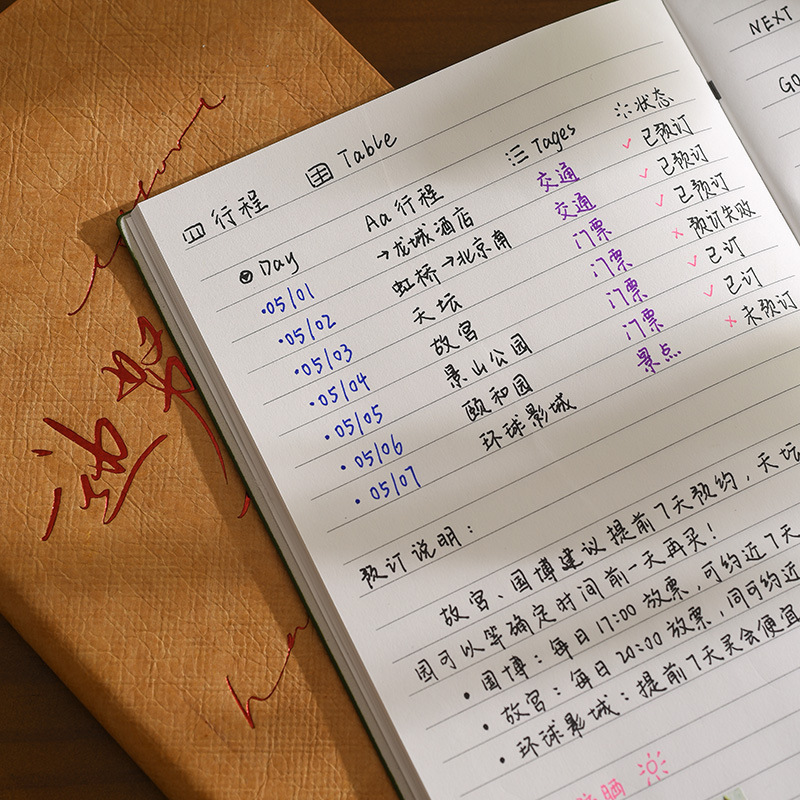 行程 Table
Day Aa 行程 Tages 状态
·05/01 →龙城酒店 交通 ✓ 已预订
·05/02 虹桥→北京南 交通 ✓ 已预订
·05/03 天坛 门票 ✓ 已预订
·05/04 故宫 门票 × 预订失败
·05/05 景山公园 门票 ✓ 已订
·05/06 颐和园 门票 ✓ 已订
·05/07 环球影城 景点 × 未预订
预订说明：
故宫、国博建议提前7天预约，天坛
园可以等确定时间前一天再买！
·国博：每日17:00放票，可约近7天
·故宫：每日20:00放票，同可约近
·环球影城：提前7天买会便宜
防晒
NEXT
GO